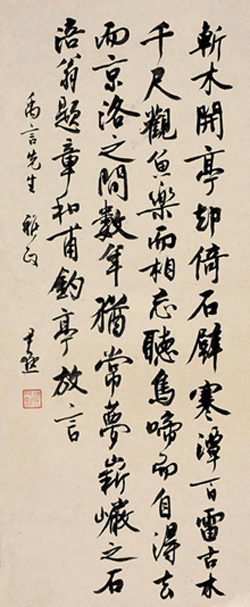 斬木開亭却倚石壁寒潭百雷古木
千尺觀魚樂而相忘聽鳥啼而自得去
而京洛之間數年猶常夢嶄巖之石
涪翁題章和甫釣亭放言
禹言先生雅政
尹默